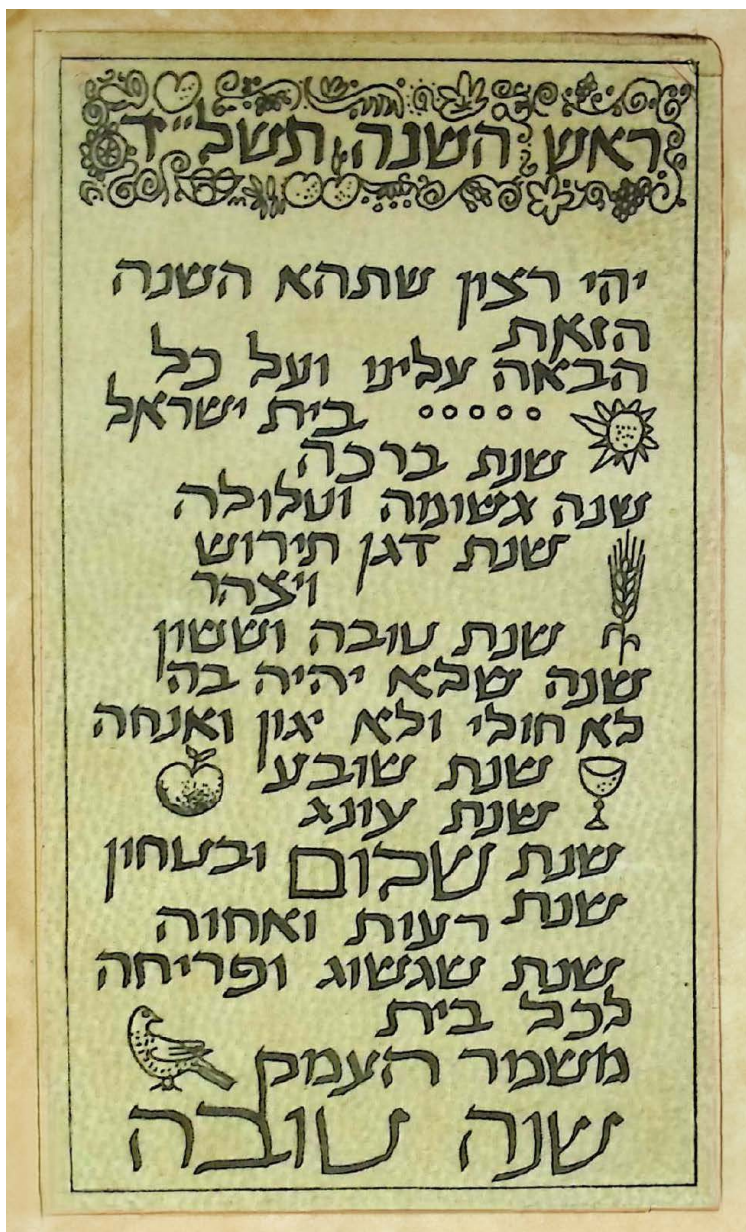 ראש השנה תשל״ד
יהי רצון שתהא השנה
הזאת
הבאה עלינו ועל כל
בית ישראל
שנת ברכה
שנה גשומה וטלולה
שנת דגן תירוש
ויצהר
שנת טובה וששון
שנה שלא יהיה בה
לא חולי ולא יגון ואנחה
שנת שובע
שנת עונג
שנת שלום ובטחון
שנת
רעות ואחוה
שנת שגשוג ופריחה
לכל בית
משמר העמק
שנה טובה